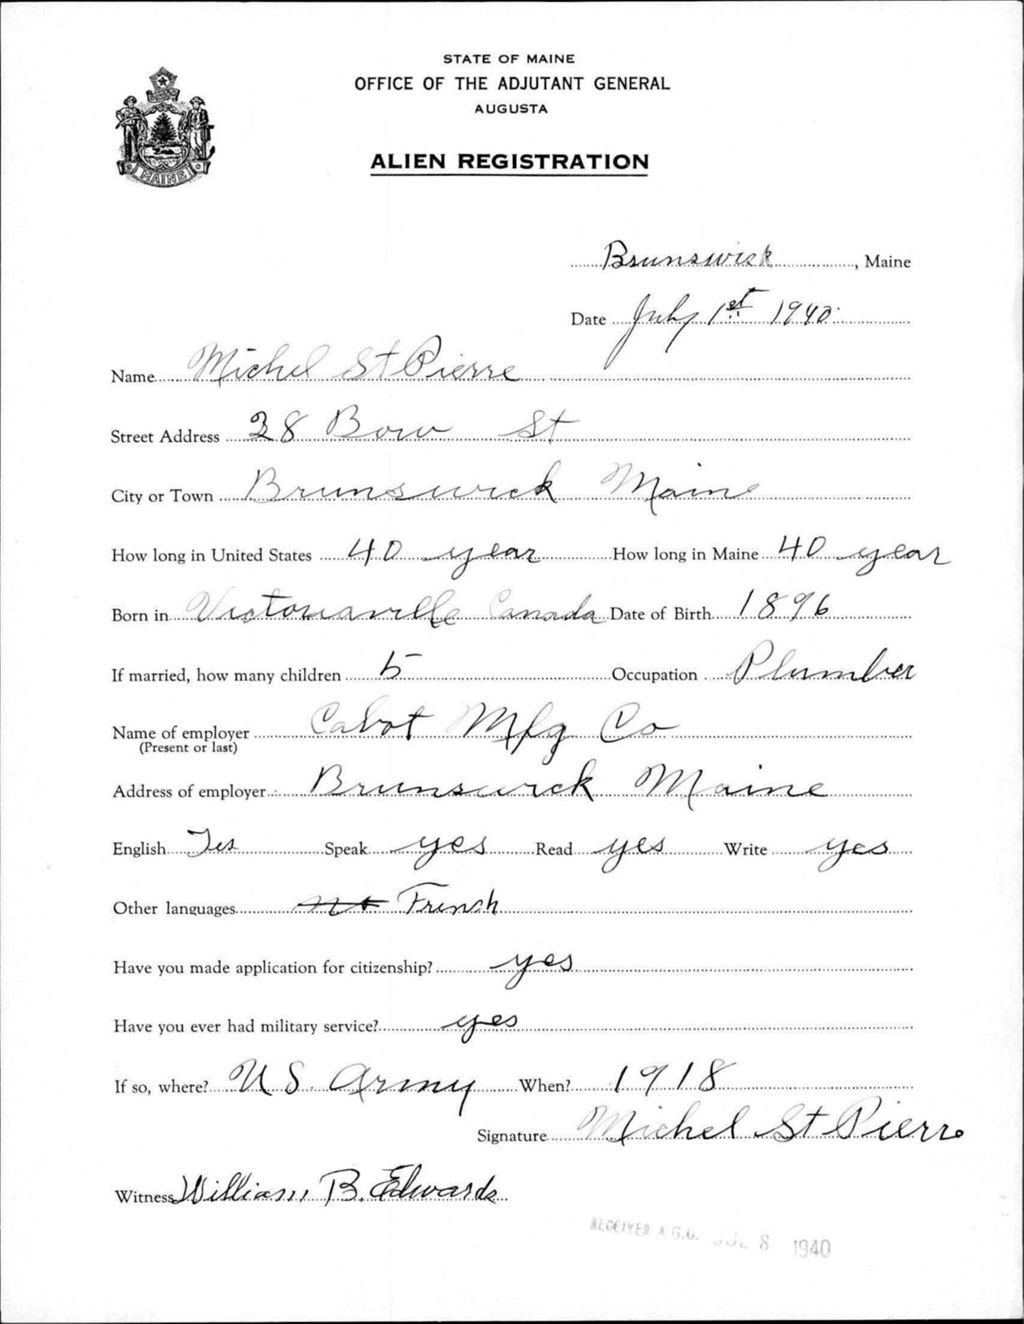 STATE OF MAINE
OFFICE OF THE ADJUTANT GENERAL
AUGUSTA
ALIEN REGISTRATION
MAINE
Brunswick, Maine
Date July 1st 1940.
Name Michel St Pierre
Street Address 38 Bow St
City or Town Brunswick Maine
How long in United States 40 year How long in Maine 40 year
Born in Victoriaville Canada Date of Birth 1896
If married, how many children 5 Occupation Plumber
Name of employer Cabot Mfg Co
(Present or last)
Address of employer Brunswick Maine
English Yes Speak yes Read yes Write yes
Other languages French
Have you made application for citizenship? yes
Have you ever had military service? yes
If so, where? U S. Army When? 1918
Signature Michel St Pierre
Witness William B. Edwards
RECEIVED A.G.O. JUL 8 1940